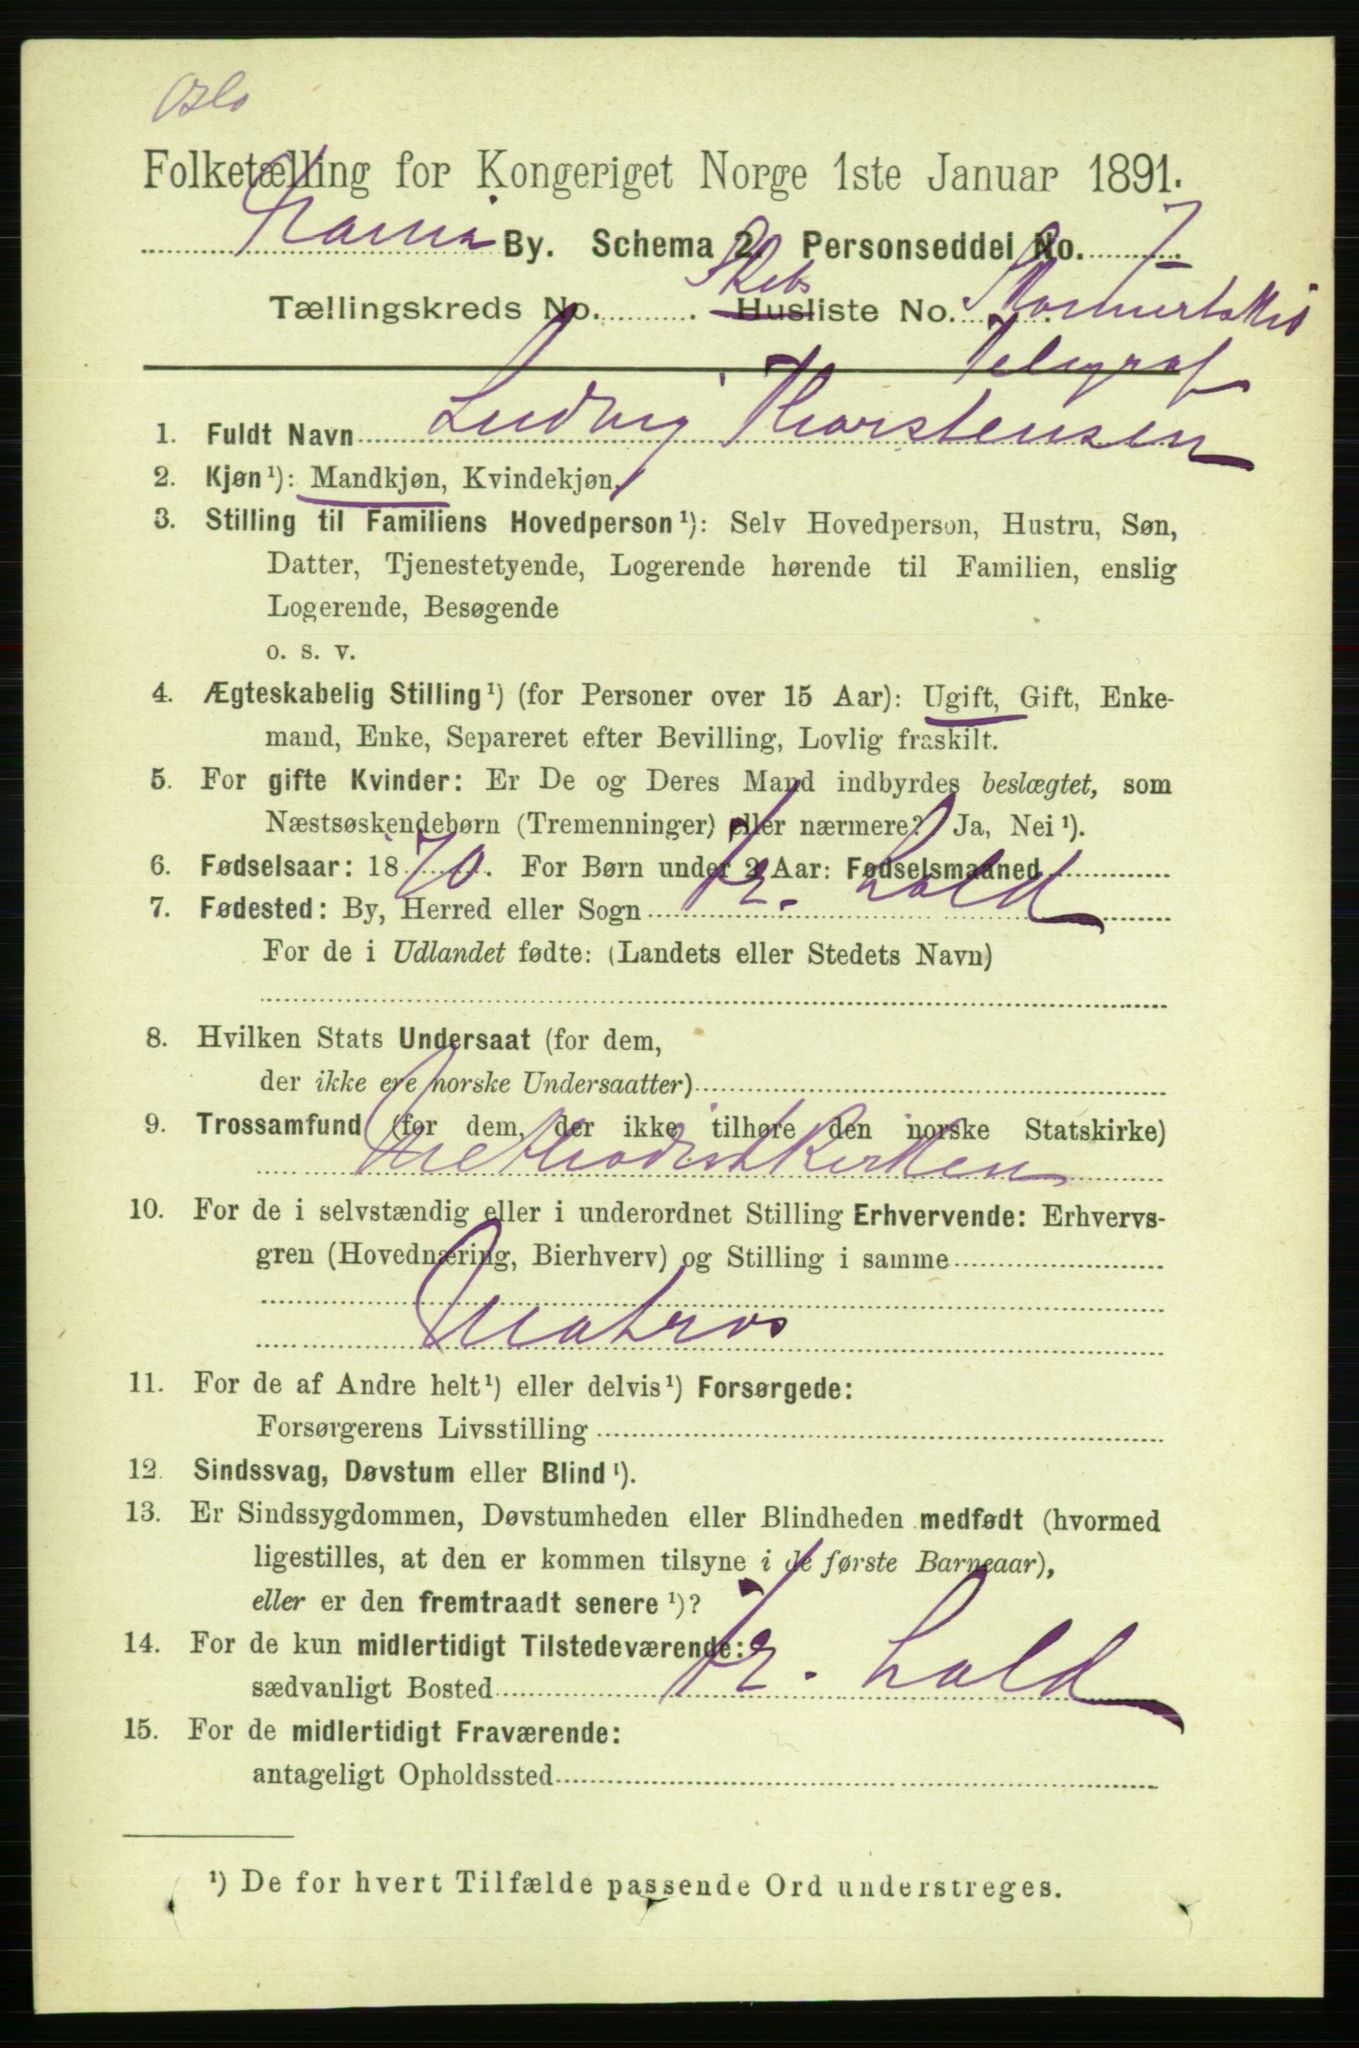 Oslo
Folketælling for Kongeriget Norge 1ste Januar 1891.
By. Schema 2. Personseddel No. 7
Skibs
Tællingskreds No. . Husliste No.
Telegraf
1. Fuldt Navn Ludvig Thorstensen
2. Kjøn¹): Mandkjøn, Kvindekjøn.
3. Stilling til Familiens Hovedperson¹): Selv Hovedperson, Hustru, Søn,
Datter, Tjenestetyende, Logerende hørende til Familien, enslig
Logerende, Besøgende
o. s. v.
4. Ægteskabelig Stilling¹) (for Personer over 15 Aar): Ugift, Gift, Enke-
mand, Enke, Separeret efter Bevilling, Lovlig fraskilt.
5. For gifte Kvinder: Er De og Deres Mand indbyrdes beslægtet, som
Næstsøskendebørn (Tremenninger) eller nærmere? Ja, Nei¹).
6. Fødselsaar: 1870. For Børn under 2 Aar: Fødselsmaaned
7. Fødested: By, Herred eller Sogn Fr. hald
For de i Udlandet fødte: (Landets eller Stedets Navn)
8. Hvilken Stats Undersaat (for dem,
der ikke ere norske Undersaatter)
9. Trossamfund (for dem, der ikke tilhøre den norske Statskirke)
Methodistkirken
10. For de i selvstændig eller i underordnet Stilling Erhvervende: Erhvervs-
gren (Hovednæring, Bierhverv) og Stilling i samme
Matros
11. For de af Andre helt¹) eller delvis¹) Forsørgede:
Forsørgerens Livsstilling
12. Sindssvag, Døvstum eller Blind¹).
13. Er Sindssygdommen, Døvstumheden eller Blindheden medfødt (hvormed
ligestilles, at den er kommen tilsyne i de første Barneaar),
eller er den fremtraadt senere¹)?
14. For de kun midlertidigt Tilstedeværende:
sædvanligt Bosted Fr. hald
15. For de midlertidigt Fraværende:
antageligt Opholdssted
¹) De for hvert Tilfælde passende Ord understreges.